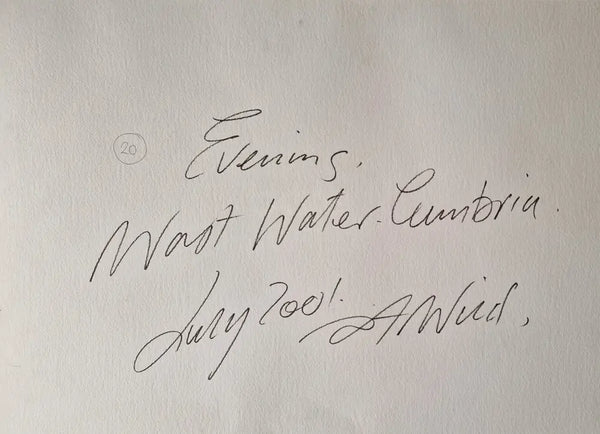 20
Evening.
Wast Water. Cumbria.
July 2001. A Wild.